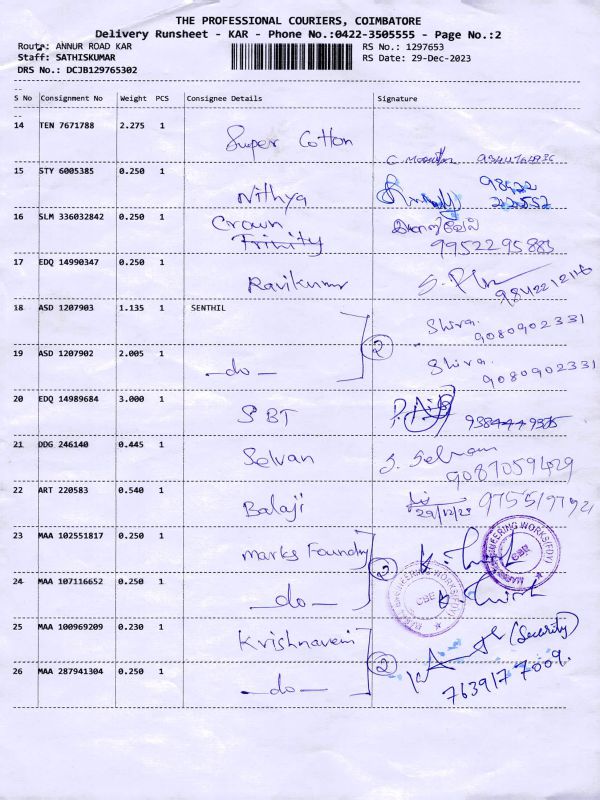 THE PROFESSIONAL COURIERS, COIMBATORE
Delivery Runsheet - KAR - Phone No.:0422-3505555 - Page No.:2
Route: ANNUR ROAD KAR RS No.: 1297653
Staff: SATHISKUMAR RS Date: 29-Dec-2023
DRS No.: DCJB129765302
S No Consignment No Weight PCS Consignee Details Signature
14 TEN 7671788 2.275 1 Super Cotton
15 STY 6005385 0.250 1 Nithya
16 SLM 336032842 0.250 1 Crown
Trinity
9952295885
17 EDQ 14990347 0.250 1 Ravikumar
9842212116
18 ASD 1207903 1.135 1 SENTHIL Shiva.
9080902331
2
19 ASD 1207902 2.005 1 —do— Shiva.
9080902331
20 EDQ 14989684 3.000 1 SBT
21 DDG 246140 0.445 1 Selvan S. Selvam
9087059429
22 ART 220583 0.540 1 Balaji
29/12/23
23 MAA 102551817 0.250 1 marks Foundry
2
24 MAA 107116652 0.250 1 —do—
25 MAA 100969209 0.230 1 Krishnaveni (Security)
2
26 MAA 287941304 0.250 1 —do— 763917 7009.